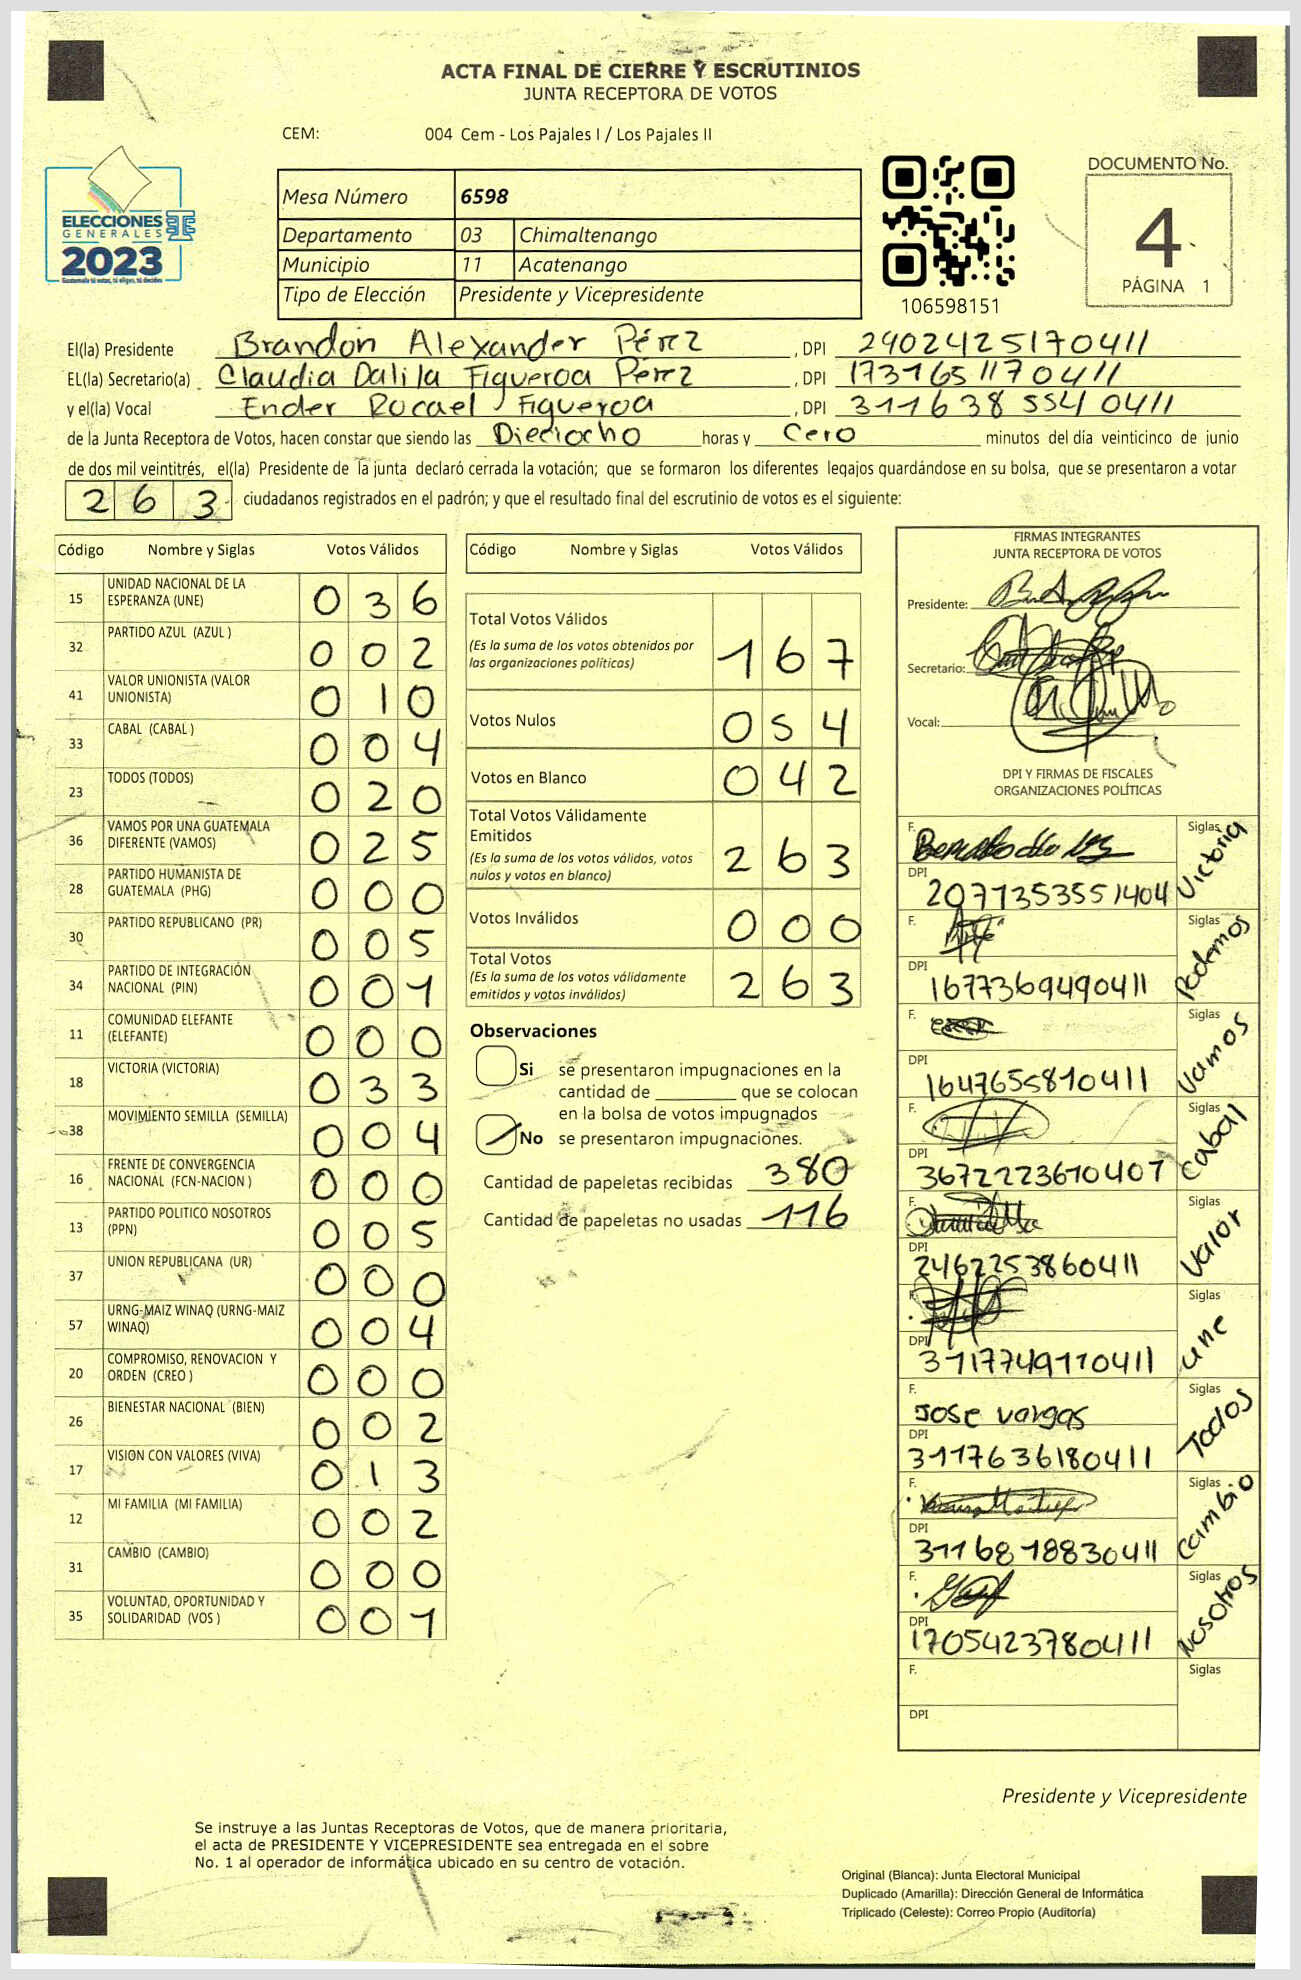 ACTA FINAL DE CIERRE Y ESCRUTINIOS
JUNTA RECEPTORA DE VOTOS
CEM: 004 Cem - Los Pajales I / Los Pajales II
ELECCIONES
GENERALES
2023
Mesa Número 6598
Departamento 03 Chimaltenango
Municipio 11 Acatenango
Tipo de Elección Presidente y Vicepresidente
106598151
DOCUMENTO No.
4
PÁGINA 1
El(la) Presidente Brandon Alexander Pérez, DPI 2902425170411
EL(la) Secretario(a) Claudia Dalila Figueroa Pérez, DPI 1731651170411
y el(la) Vocal Ender Rocael Figueroa, DPI 3116385540411
de la Junta Receptora de Votos, hacen constar que siendo las Dieciocho horas y Cero minutos del día veinticinco de junio
de dos mil veintitrés, el(la) Presidente de la junta declaró cerrada la votación; que se formaron los diferentes legajos guardándose en su bolsa, que se presentaron a votar
263 ciudadanos registrados en el padrón; y que el resultado final del escrutinio de votos es el siguiente:
Código Nombre y Siglas Votos Válidos
15 UNIDAD NACIONAL DE LA ESPERANZA (UNE) 036
32 PARTIDO AZUL (AZUL ) 002
41 VALOR UNIONISTA (VALOR UNIONISTA) 010
33 CABAL (CABAL ) 004
23 TODOS (TODOS) 020
36 VAMOS POR UNA GUATEMALA DIFERENTE (VAMOS) 025
28 PARTIDO HUMANISTA DE GUATEMALA (PHG) 000
30 PARTIDO REPUBLICANO (PR) 005
34 PARTIDO DE INTEGRACIÓN NACIONAL (PIN) 001
11 COMUNIDAD ELEFANTE (ELEFANTE) 000
18 VICTORIA (VICTORIA) 033
38 MOVIMIENTO SEMILLA (SEMILLA) 004
16 FRENTE DE CONVERGENCIA NACIONAL (FCN-NACION ) 000
13 PARTIDO POLITICO NOSOTROS (PPN) 005
37 UNION REPUBLICANA (UR) 000
57 URNG-MAIZ WINAQ (URNG-MAIZ WINAQ) 004
20 COMPROMISO, RENOVACION Y ORDEN (CREO ) 000
26 BIENESTAR NACIONAL (BIEN) 002
17 VISION CON VALORES (VIVA) 013
12 MI FAMILIA (MI FAMILIA) 002
31 CAMBIO (CAMBIO) 000
35 VOLUNTAD, OPORTUNIDAD Y SOLIDARIDAD (VOS ) 001
Código Nombre y Siglas Votos Válidos
Total Votos Válidos
(Es la suma de los votos obtenidos por
las organizaciones políticas) 167
Votos Nulos 054
Votos en Blanco 042
Total Votos Válidamente
Emitidos
(Es la suma de los votos válidos, votos
nulos y votos en blanco) 263
Votos Inválidos 000
Total Votos
(Es la suma de los votos válidamente
emitidos y votos inválidos) 263
Observaciones
Si se presentaron impugnaciones en la
cantidad de ________ que se colocan
en la bolsa de votos impugnados
No se presentaron impugnaciones.
Cantidad de papeletas recibidas 380
Cantidad de papeletas no usadas 116
FIRMAS INTEGRANTES
JUNTA RECEPTORA DE VOTOS
Presidente:
Secretario:
Vocal:
DPI Y FIRMAS DE FISCALES
ORGANIZACIONES POLÍTICAS
F. Siglas Victoria
DPI 2077353551404
F. Siglas Podemos
DPI 1677369490411
F. Siglas Vamos
DPI 1647655810411
F. Siglas Caball
DPI 3672223610407
F. Siglas Valor
DPI 2462253860411
F. Siglas Une
DPI 3117749110411
F. Jose Vargas Siglas Todos
DPI 3117636180411
F. Siglas Cambio
DPI 3116818830411
F. Siglas Nosotros
DPI 1705423780411
F. Siglas
DPI
Presidente y Vicepresidente
Se instruye a las Juntas Receptoras de Votos, que de manera prioritaria,
el acta de PRESIDENTE Y VICEPRESIDENTE sea entregada en el sobre
No. 1 al operador de informática ubicado en su centro de votación.
Original (Blanca): Junta Electoral Municipal
Duplicado (Amarilla): Dirección General de Informática
Triplicado (Celeste): Correo Propio (Auditoría)